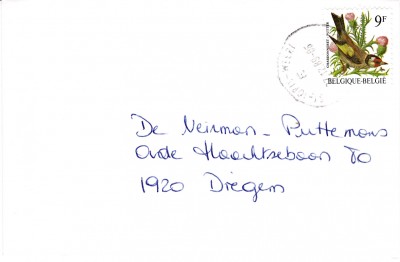 9F
BELGIQUE-BELGIË
De Neirman - Puttemans
Oude Haachtsebaan 80
1920 Diegem